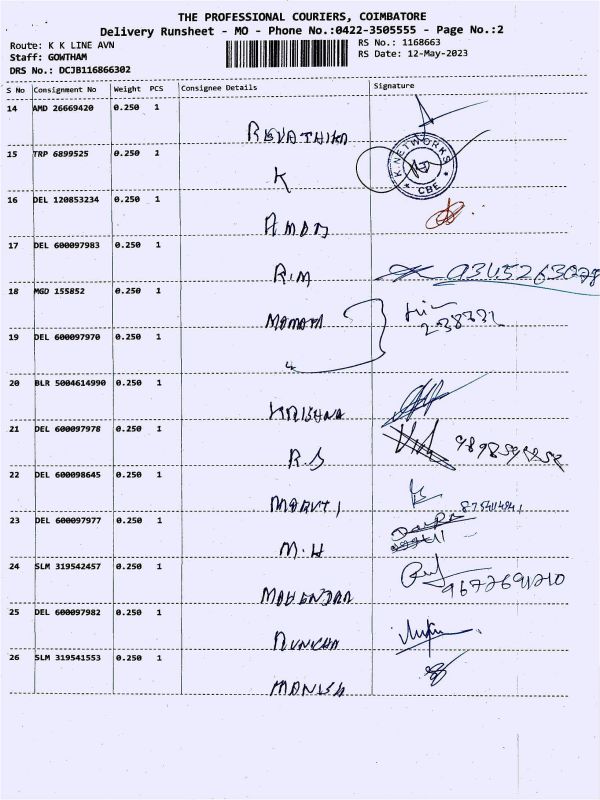 THE PROFESSIONAL COURIERS, COIMBATORE
Delivery Runsheet - MO - Phone No.:0422-3505555 - Page No.:2
Route: K K LINE AVN RS No.: 1168663
Staff: GOWTHAM RS Date: 12-May-2023
DRS No.: DCJB116866302
S No Consignment No Weight PCS Consignee Details Signature
14 AMD 26669420 0.250 1
REVATHIKA
15 TRP 6899525 0.250 1
K.NETWORKS
K
CBE
16 DEL 120853234 0.250 1
17 DEL 600097983 0.250 1
R.M
18 MGD 155852 0.250 1
19 DEL 600097970 0.250 1
20 BLR 5004614990 0.250 1
KRISHNA
21 DEL 600097978 0.250 1
R.S
22 DEL 600098645 0.250 1
MARUTI
23 DEL 600097977 0.250 1
M.H
24 SLM 319542457 0.250 1
9672691210
MAHENDRA
25 DEL 600097982 0.250 1
26 SLM 319541553 0.250 1
MANISH